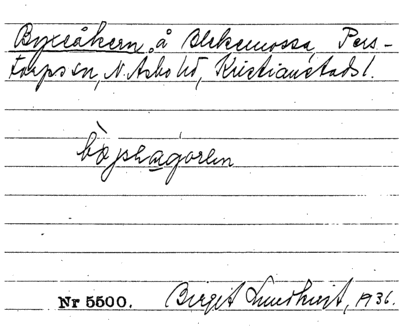 Byxeåkern, å Blekemossa, Pers-
torps sn, N. Åsbo hd, Kristianstads l.
Nr 5500. Birgit Lundkvist, 1936.